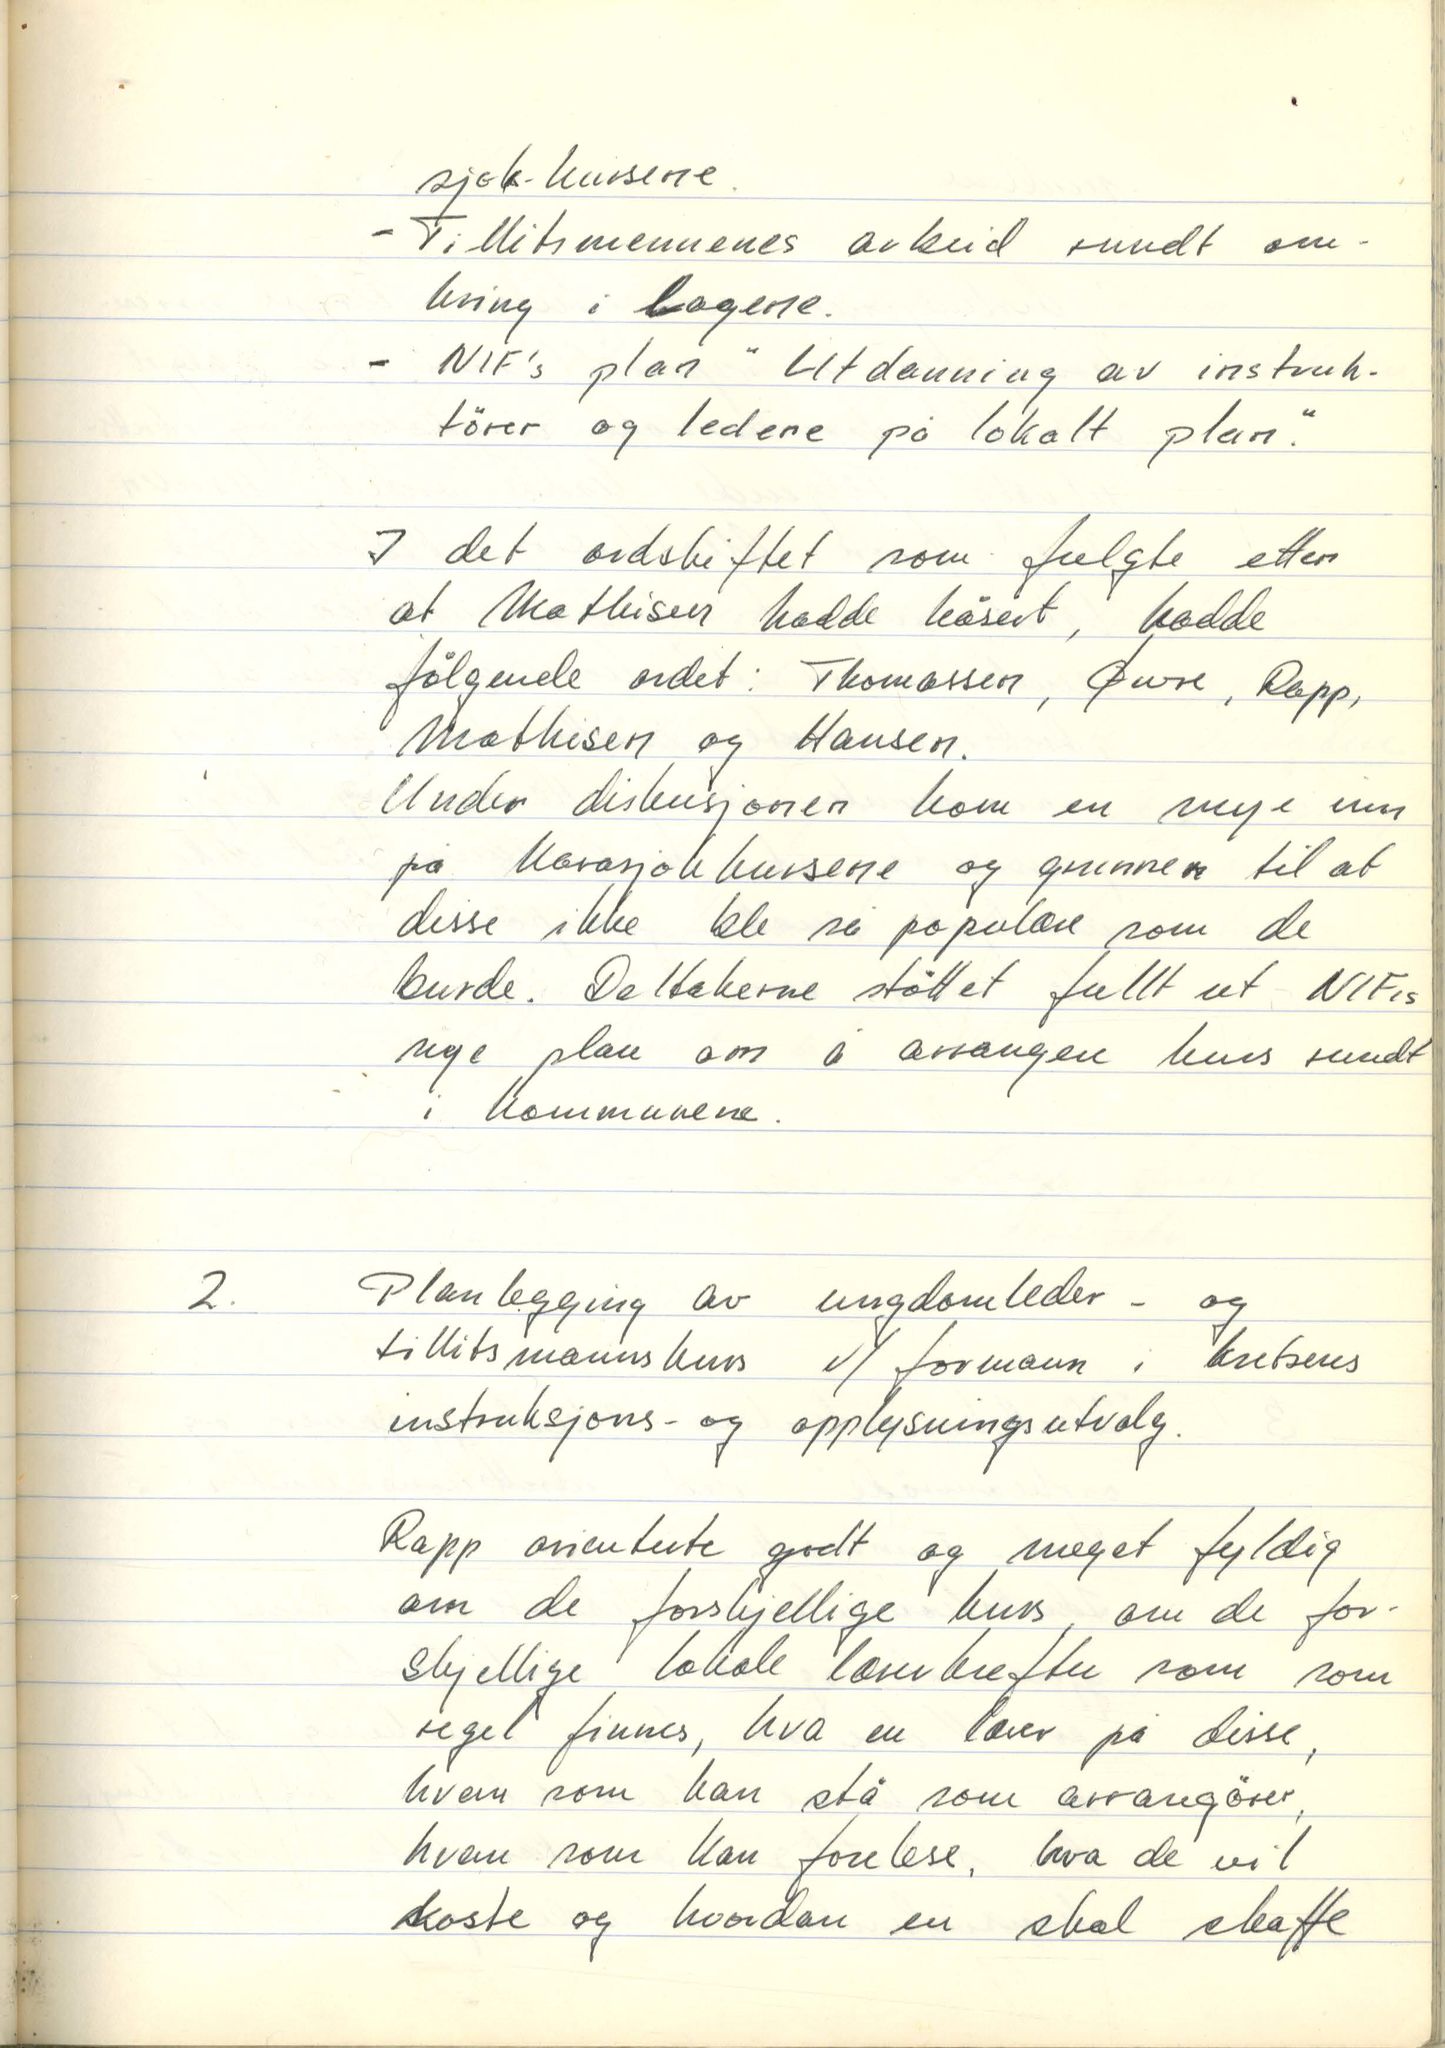 sjok-kursene.
- Tillitsmennenes arbeid rundt om-
kring i lagene.
- NIF's plan "Utdanning av instruk-
törer og ledere på lokalt plan."
I det ordskiftet som fulgte etter
at Mathisen hadde kåsert, hadde
fölgende ordet: Thomassen, Øwre, Rapp,
Mathisen og Hansen.
Under diskusjonen kom en mye inn
på Karasjokkursene og grunnen til at
disse ikke ble så populære som de
burde. Deltakerne stöttet fullt ut NIF's
nye plan om å arrangere kurs rundt
i kommunene.
2. Planlegging av ungdomleder- og
tillitsmannskurs v/ formann i kretsens
instruksjons- og opplysningsutvalg.
Rapp orienterte godt og meget fyldig
om de forskjellige kurs, om de for-
skjellige lokale lærerkrefter som som
regel finnes, hva en lærer på disse,
hvem som kan stå som arrangörer,
hvem som kan forelese, hva de vil
koste og hvordan en skal skaffe